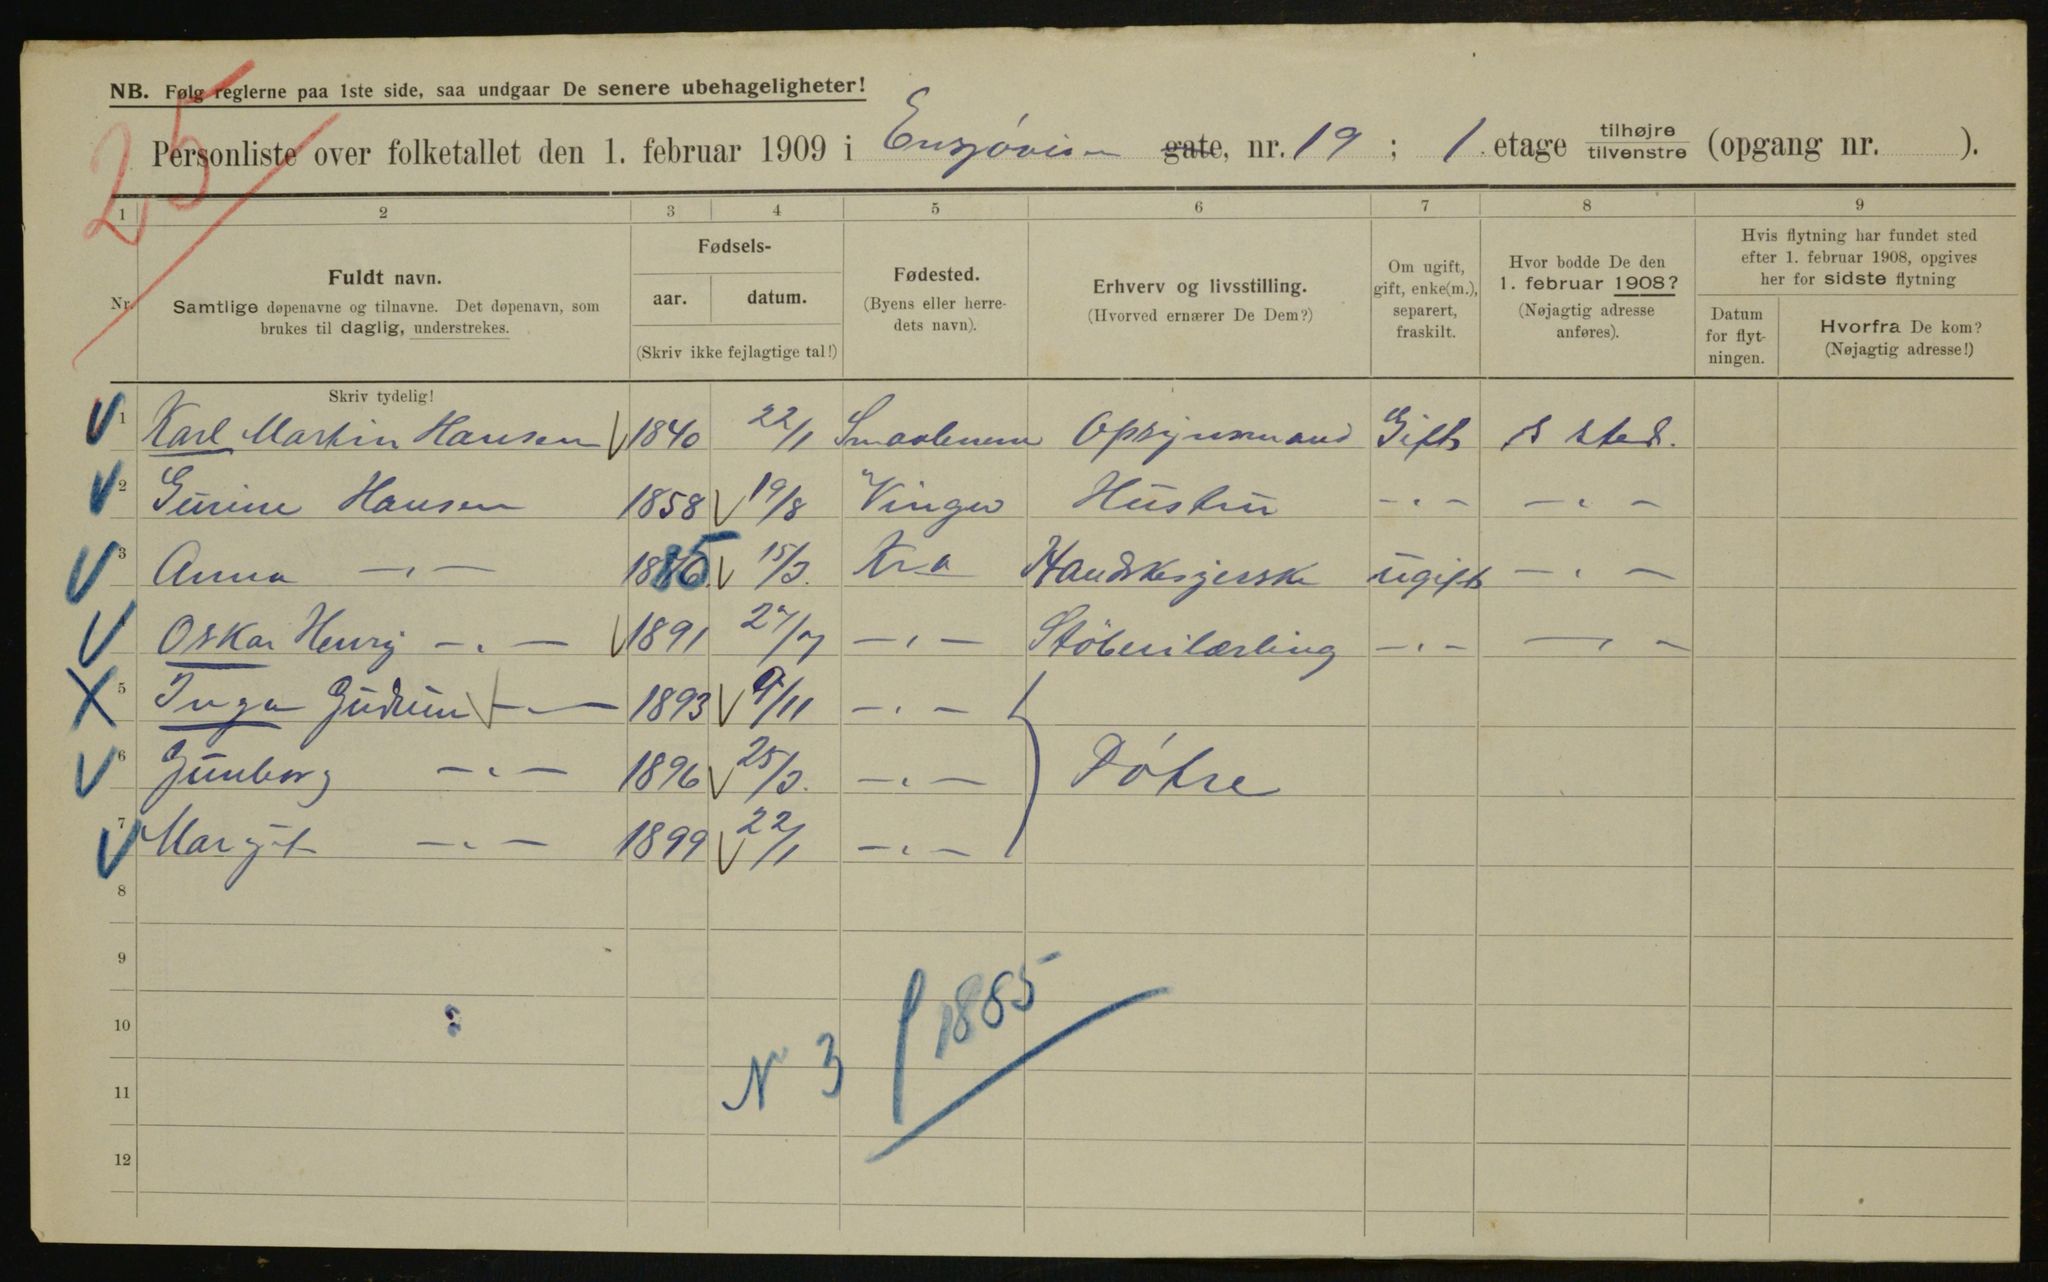 NB. Følg reglerne paa 1ste side, saa undgaar De senere ubehageligheter!
25
Personliste over folketallet den 1. februar 1909 i Ensjøveien gate, nr. 19 ; 1 etage tilhøjre tilvenstre (opgang nr. ).
1 2 3 4 5 6 7 8 9
Nr. Fuldt navn. Samtlige døpenavne og tilnavne. Det døpenavn, som brukes til daglig, understrekes.
Fødsels- aar. datum. (Skriv ikke fejlagtige tal!)
Fødested. (Byens eller herredets navn).
Erhverv og livsstilling. (Hvorved ernærer De Dem?)
Om ugift, gift, enke(m.), separert, fraskilt.
Hvor bodde De den 1. februar 1908? (Nøjagtig adresse anføres).
Hvis flytning har fundet sted efter 1. februar 1908, opgives her for sidste flytning
Datum for flytningen. Hvorfra De kom? (Nøjagtig adresse!)
Skriv tydelig!
1 Karl Martin Hansen 1840 22/1 Smaalenene Opsynsmand Gift S sted.
2 Gurine Hansen 1858 19/8 Vinger Hustru -"- -"-
3 Anna -"- 1885 15/3. Kra Handskesyerske ugift -"-
4 Oskar Henry -"- 1891 27/7 -"- Støberilærling -"- -"-
5 Inga Gudrun -"- 1893 9/11 -"-
6 Gunborg -"- 1896 25/3. -"- Døtre
7 Margit -"- 1899 22/1 -"-
8
9
10
11
12
N 3 / 1885